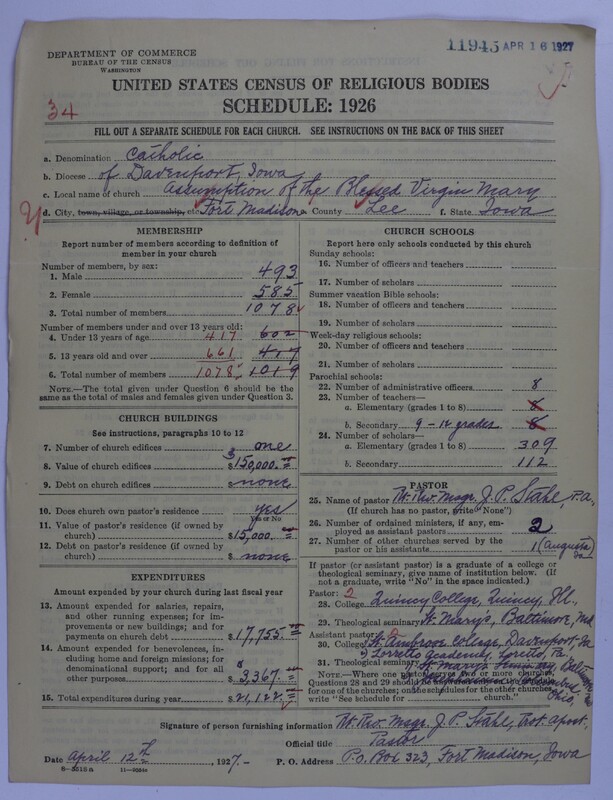 DEPARTMENT OF COMMERCE
BUREAU OF THE CENSUS
WASHINGTON
11943 APR 16 1927
UNITED STATES CENSUS OF RELIGIOUS BODIES
SCHEDULE: 1926
34
FILL OUT A SEPARATE SCHEDULE FOR EACH CHURCH. SEE INSTRUCTIONS ON THE BACK OF THIS SHEET
a. Denomination Catholic
b. Diocese of Davenport, Iowa
c. Local name of church Assumption of the Blessed Virgin Mary
d. City, town, village, or township, etc. Fort Madison County Lee f. State Iowa
MEMBERSHIP
Report number of members according to definition of
member in your church
Number of members, by sex:
1. Male 493
2. Female 585
3. Total number of members 1078
Number of members under and over 13 years old:
4. Under 13 years of age 417 602
5. 13 years old and over 661 417
6. Total number of members 1078 1019
NOTE.—The total given under Question 6 should be the
same as the total of males and females given under Question 3.
CHURCH BUILDINGS
See instructions, paragraphs 10 to 12
7. Number of church edifices one
8. Value of church edifices $150,000.
9. Debt on church edifices $ none
10. Does church own pastor's residence yes
Yes or No
11. Value of pastor's residence (if owned by
church) $15,000.
12. Debt on pastor's residence (if owned by
church) $ none
EXPENDITURES
Amount expended by your church during last fiscal year
13. Amount expended for salaries, repairs,
and other running expenses; for im-
provements or new buildings; and for
payments on church debt $17,755.
14. Amount expended for benevolences, in-
cluding home and foreign missions; for
denominational support; and for all
other purposes $ 3,367.
15. Total expenditures during year $21,122
CHURCH SCHOOLS
Report here only schools conducted by this church
Sunday schools:
16. Number of officers and teachers
17. Number of scholars
Summer vacation Bible schools:
18. Number of officers and teachers
19. Number of scholars
Week-day religious schools:
20. Number of officers and teachers
21. Number of scholars
Parochial schools:
22. Number of administrative officers 8
23. Number of teachers—
a. Elementary (grades 1 to 8) 8
b. Secondary 9-12 grades 8
24. Number of scholars—
a. Elementary (grades 1 to 8) 309
b. Secondary 112
PASTOR
25. Name of pastor Rt. Rev. Msgr. J. P. Stahl, P.A.
(If church has no pastor, write "None")
26. Number of ordained ministers, if any, em-
ployed as assistant pastors 2
27. Number of other churches served by the
pastor or his assistants 1 (Augusta
If pastor (or assistant pastor) is a graduate of a college or
theological seminary, give name of institution below. (If
not a graduate, write "No" in the space indicated.)
Pastor: 2
28. College Quincy College, Quincy, Ill.
29. Theological seminary St. Mary's, Baltimore, Md.
Assistant pastor:
30. College St. Ambrose College, Davenport, Ia
Loretto Academy, Loretto, Pa,
31. Theological seminary St. Mary's Seminary, Baltimore
NOTE.—Where one pastor serves two or more churches,
Question 28 and 29 should be
for one of the churches; on the schedules for the other churches
write "See schedule for church." Ohio,
Signature of person furnishing information Rt. Rev. Msgr. J. P. Stahl, Prot. apost.
Official title Pastor
Date April 12th, 1927.— P. O. Address P.O. Box 323, Fort Madison, Iowa